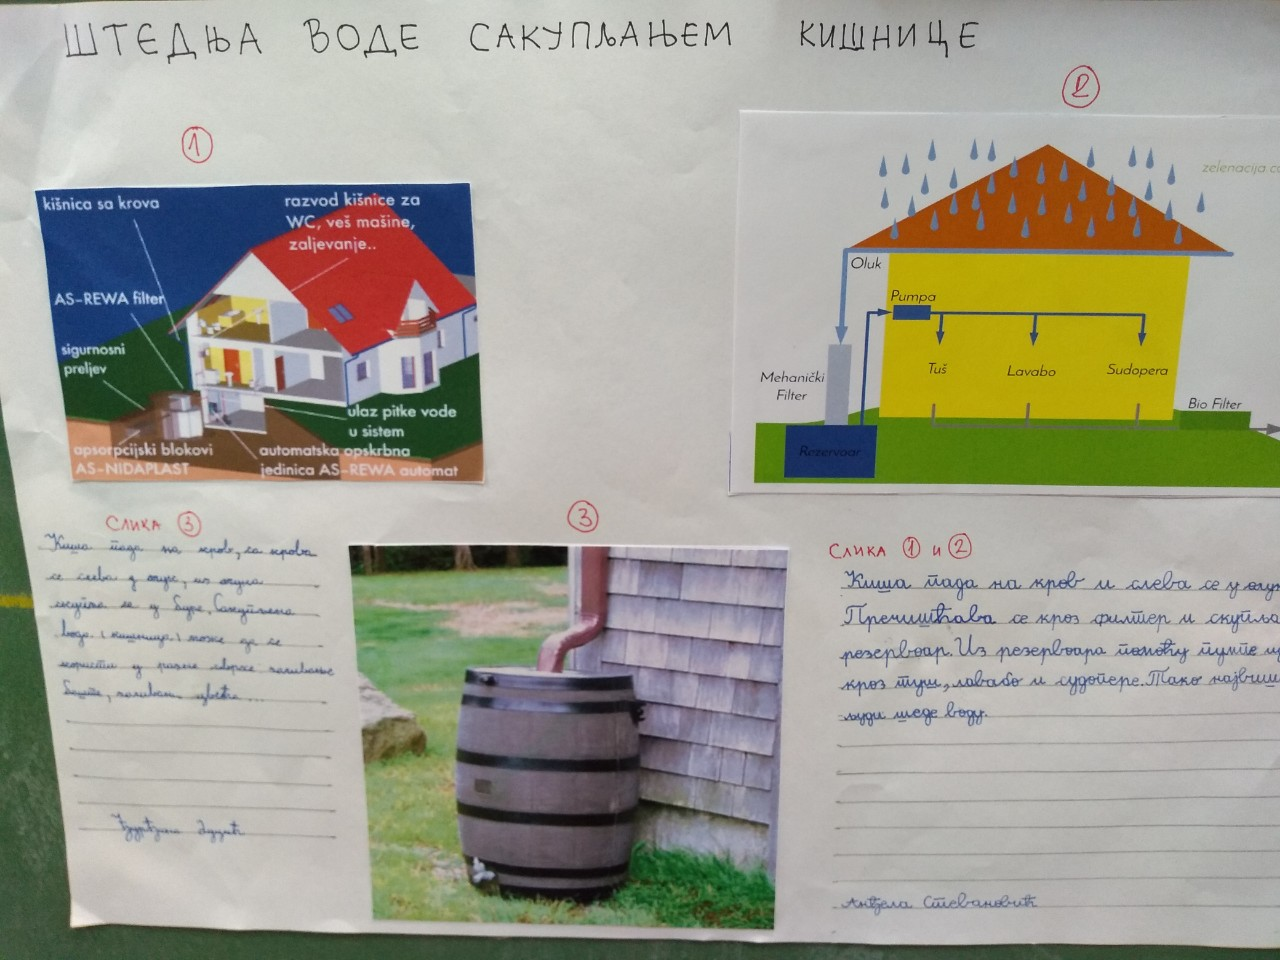 ШТЕДЊА ВОДЕ САКУПЉАЊЕМ КИШНИЦЕ
1
kišnica sa krova
razvod kišnice za
WC, veš mašine,
zaljevanje..
AS-REWA filter
sigurnosni
preljev
ulaz pitke vode
u sistem
apsorpcijski blokovi
AS-NIDAPLAST
automatska opskrbna
jedinica AS-REWA automat
2
zelenacija.co
Oluk
Pumpa
Mehanički
Filter
Tuš
Lavabo
Sudopera
Bio Filter
Rezervoar
СЛИКА 3
Киша пада на кров, са крова
се слева у олуке, из олука
скупља се у буре. Сакупљена
вода (кишница) може да се
користи у разне сврхе заливање
баште, заливање цвећа...
3
СЛИКА 1 И 2
Киша пада на кров и слева се у
Пречишћава се кроз филтер и скупља
резервоар. Из резервоара помоћу пумпе
кроз туш, лавабо и судопере. Тако
људи штеде воду.
Анђела Стевановић